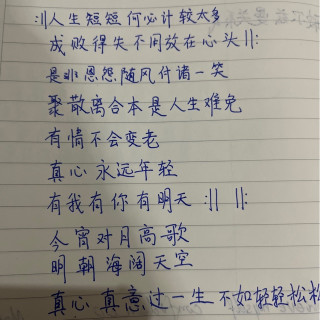 :||人生短短何必计较太多
成败得失不用放在心头||:
是非恩怨随风付诸一笑
聚散离合本是人生难免
有情不会变老
真心永远年轻
有我有你有明天:|| ||:
今宵对月高歌
明朝海阔天空
真心真意过一生不如轻轻松松